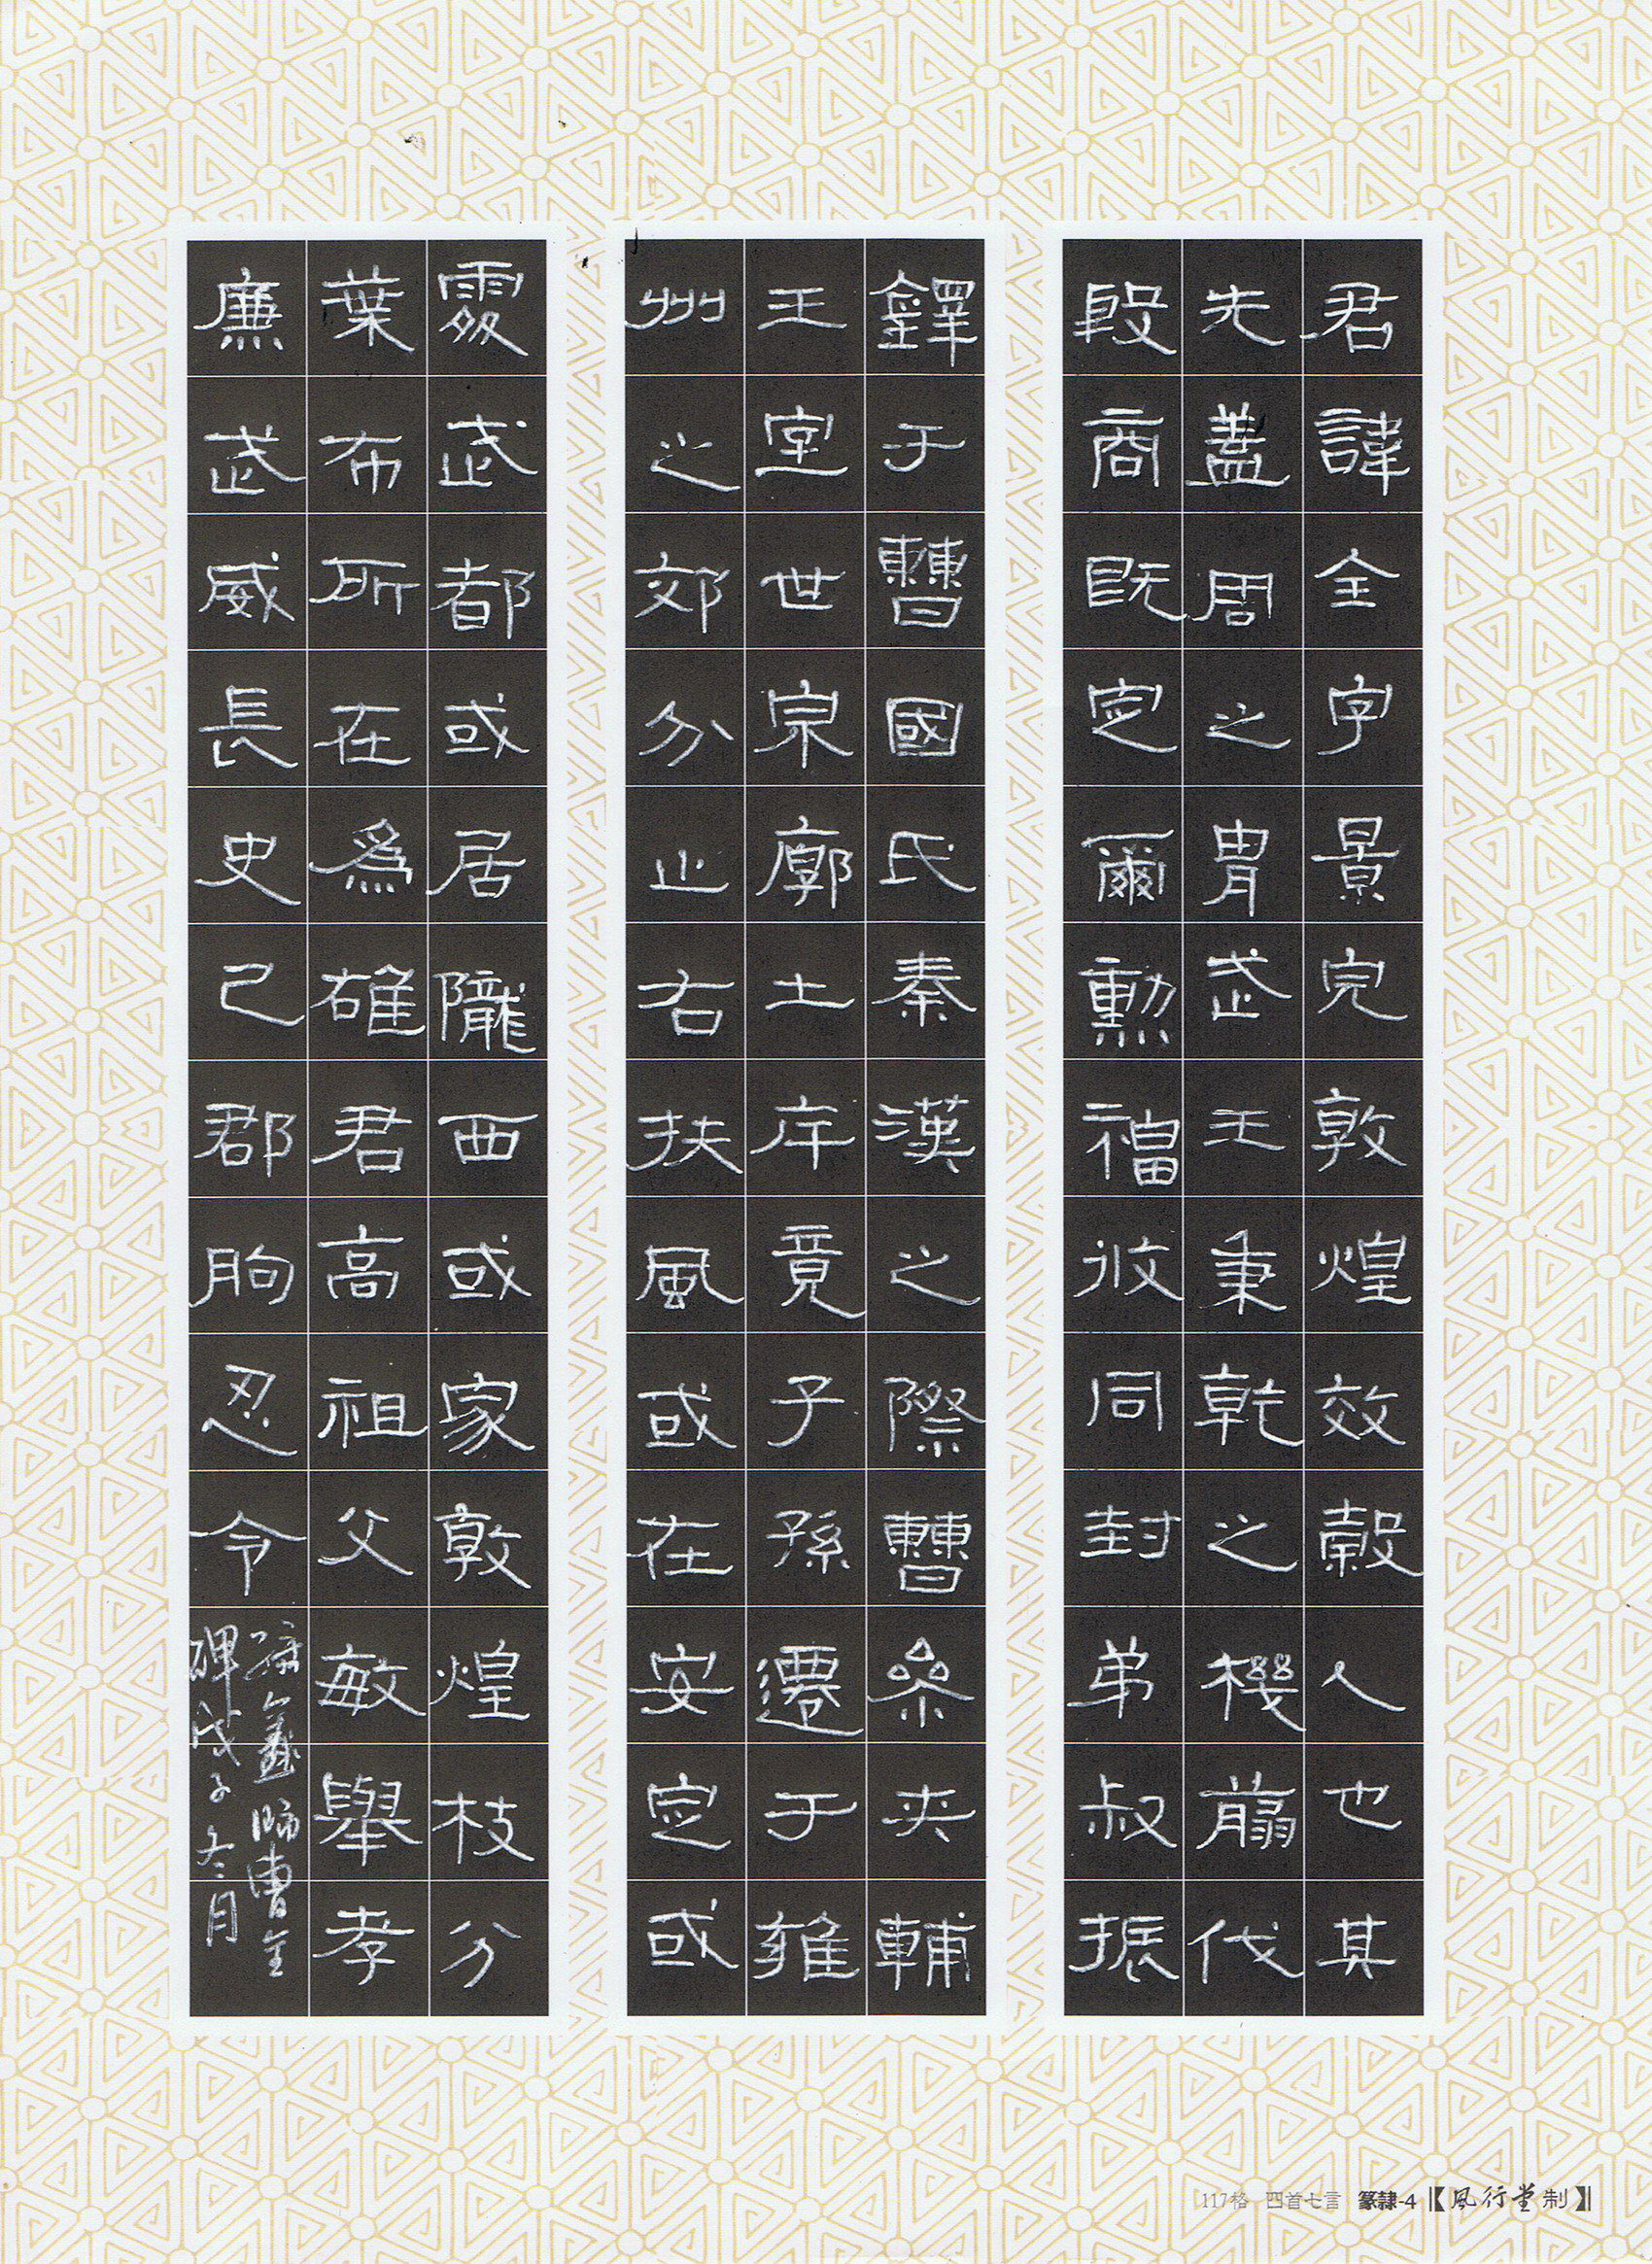 君諱全字景完敦煌效穀人也其
先蓋周之胄武王秉乾之機翦伐
殷商既定爾勳福攸同封弟叔振
鐸于曹國氏焉秦漢之際曹參夾輔
王室世宗廓土斥竟子孫遷于雍
州之郊分止右扶風或在安定或
處武都或居隴西或家敦煌枝分
葉布所在為雄君高祖父敏舉孝
廉武威長史巴郡朐忍令
張鑫師曹全
碑戊子冬月
117格 四首七言 篆隸-4【風行堂制】